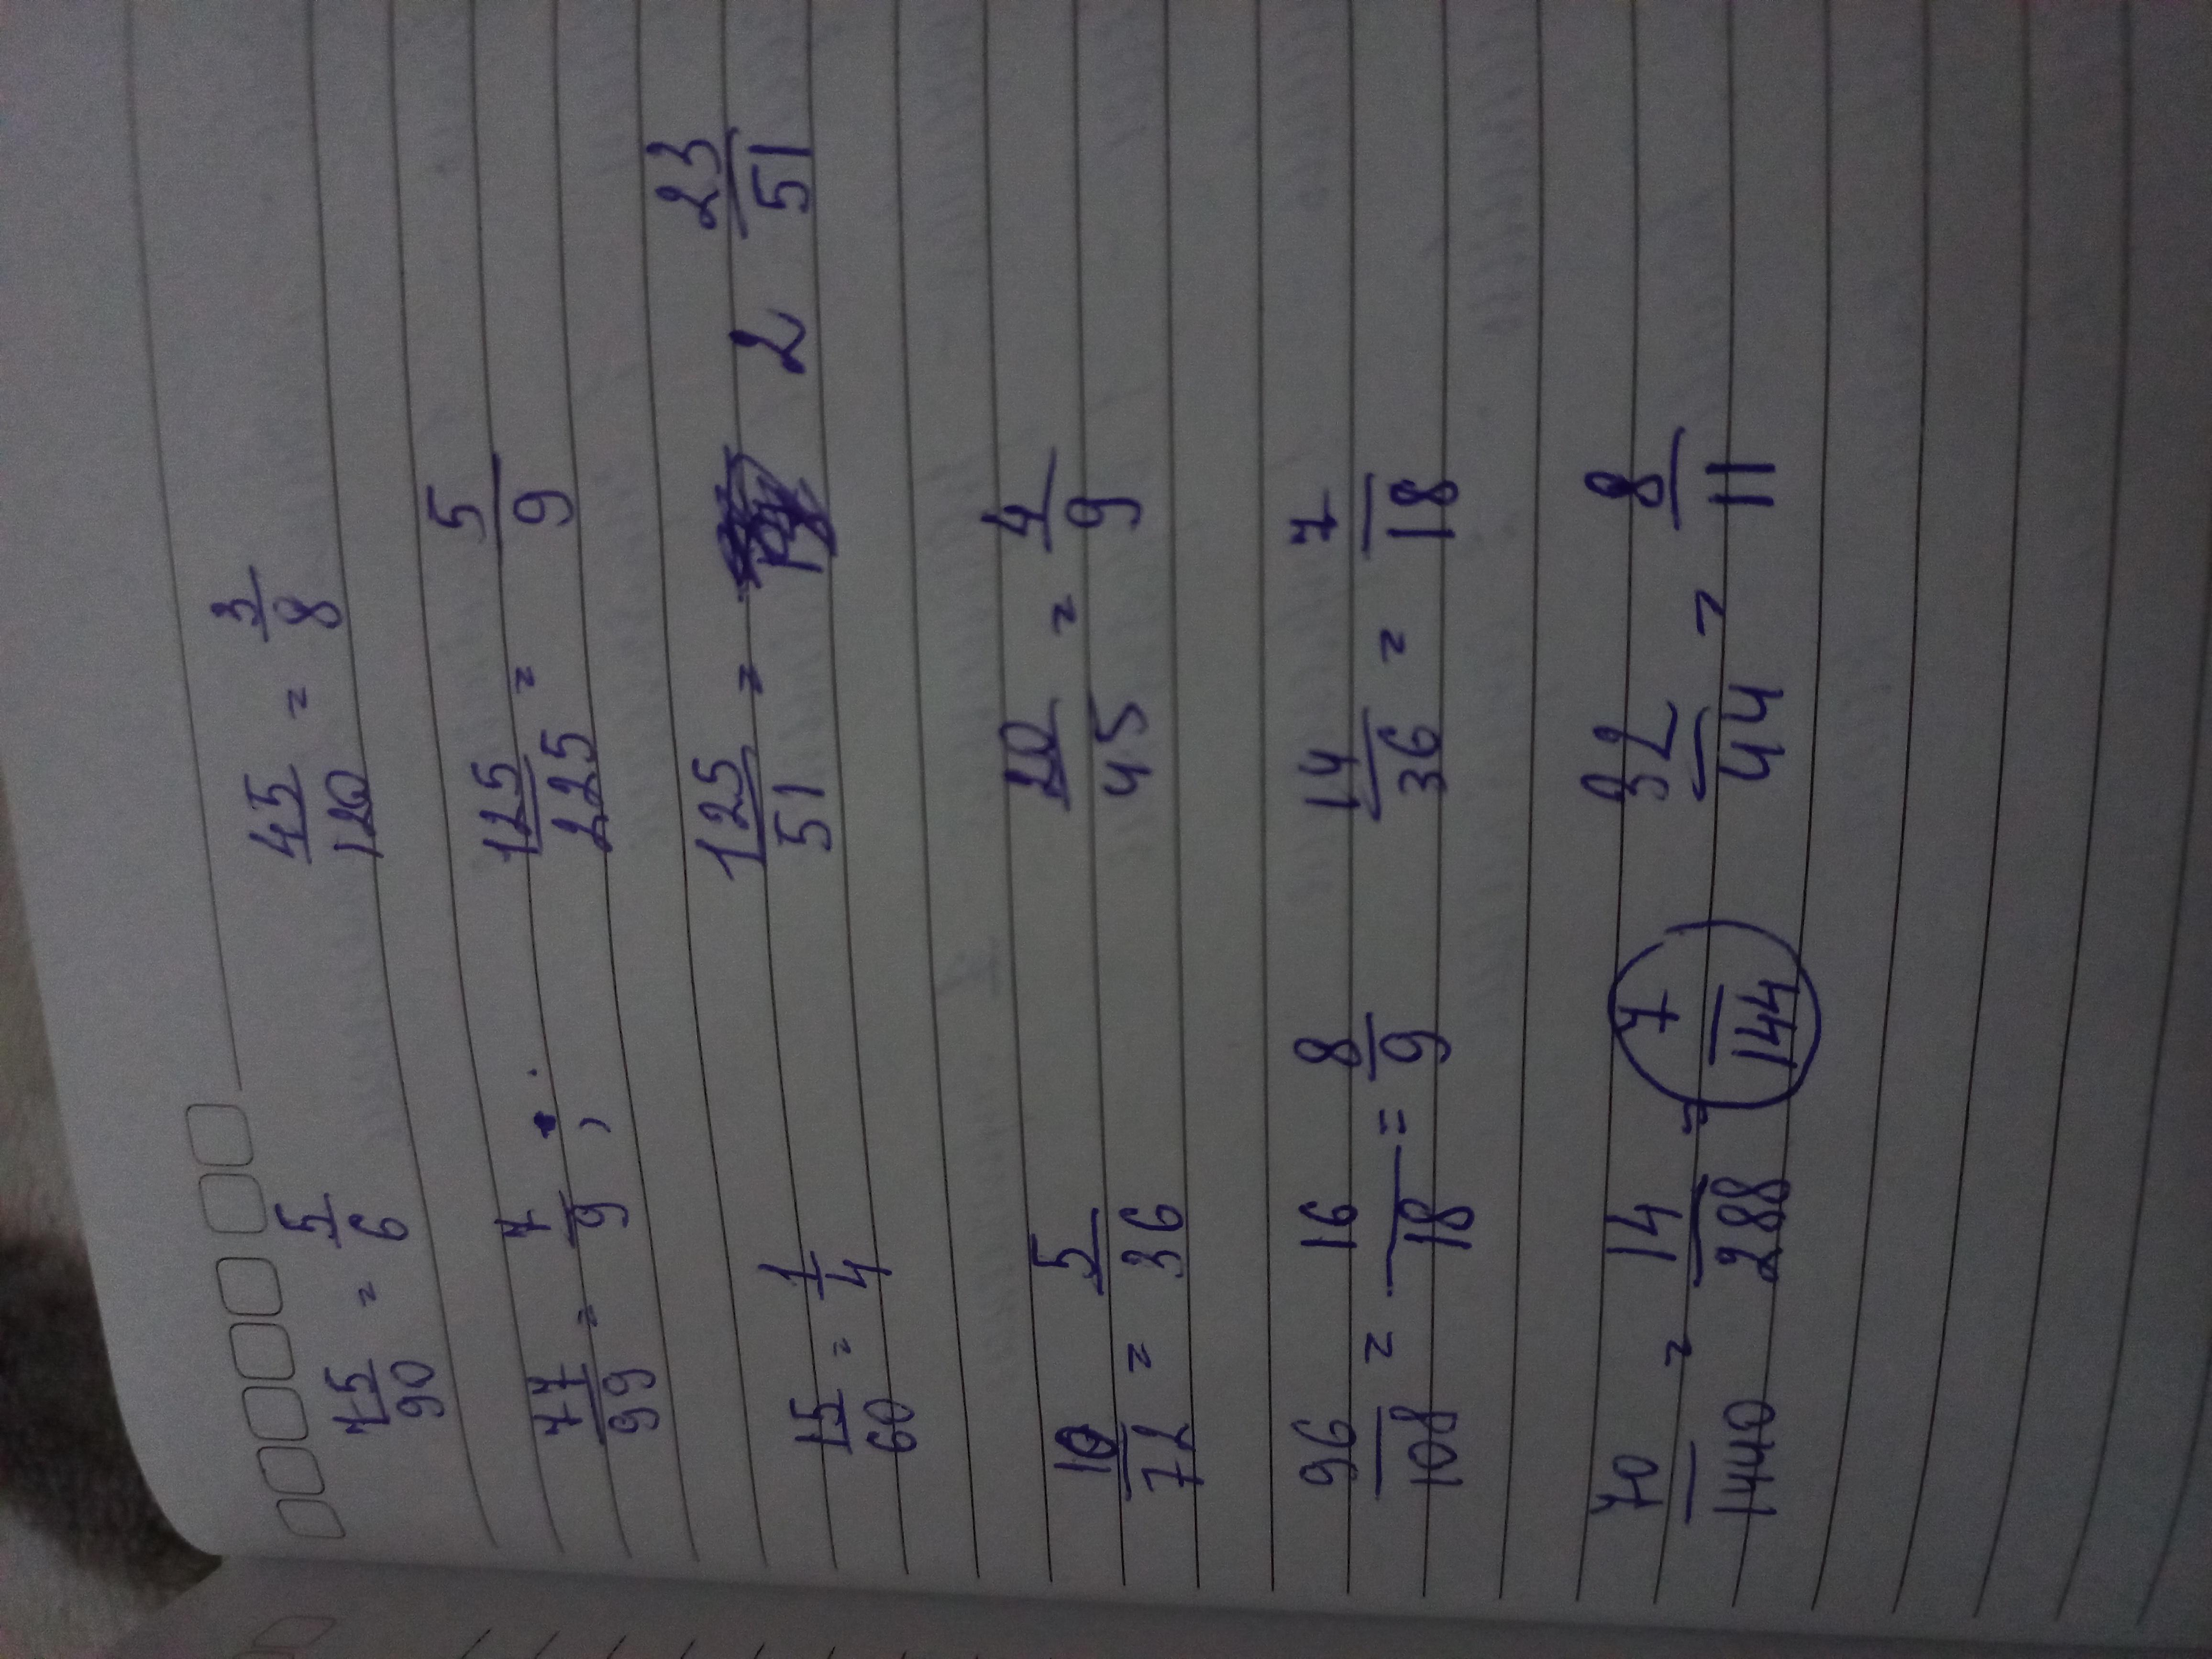 75/90 = 5/6   45/120 = 3/8
77/99 = 7/9 ;   125/225 = 5/9
15/60 = 1/4   125/51 = 2 23/51
10/72 = 5/36   20/45 = 4/9
96/108 = 16/18 = 8/9   14/36 = 7/18
70/1440 = 14/288 = 7/144   32/44 = 8/11